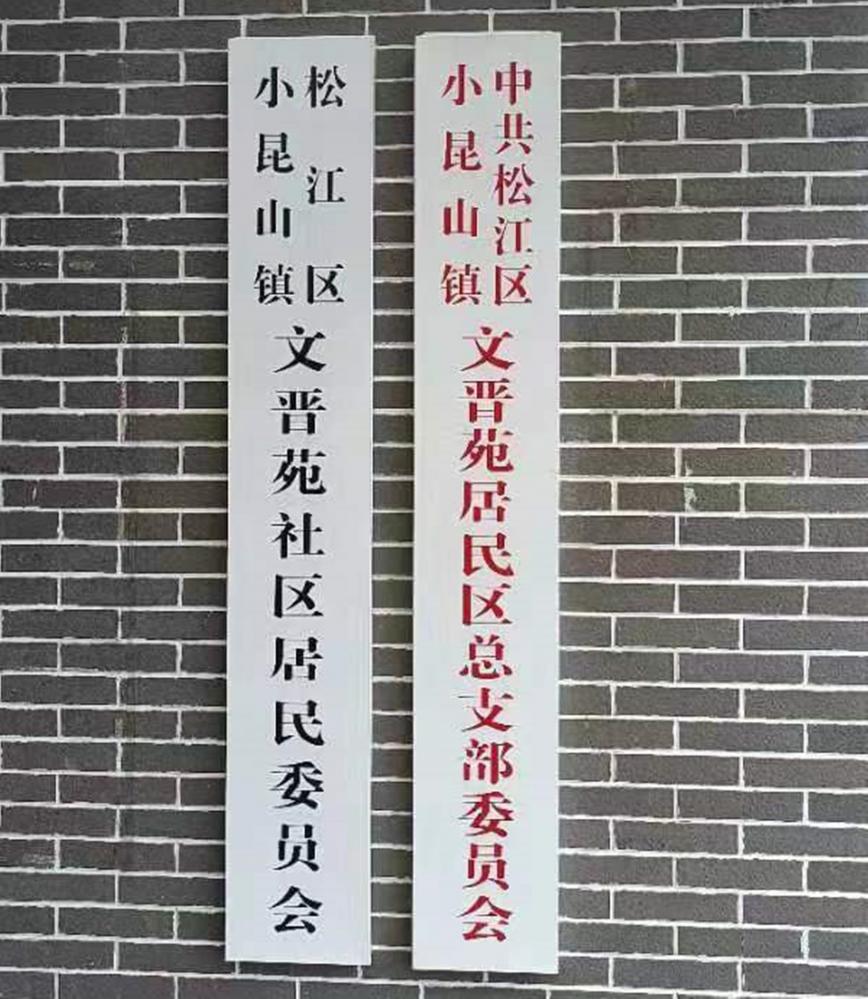 中共松江区
小昆山镇
文晋苑居民区总支部委员会
松江区
小昆山镇
文晋苑社区居民委员会